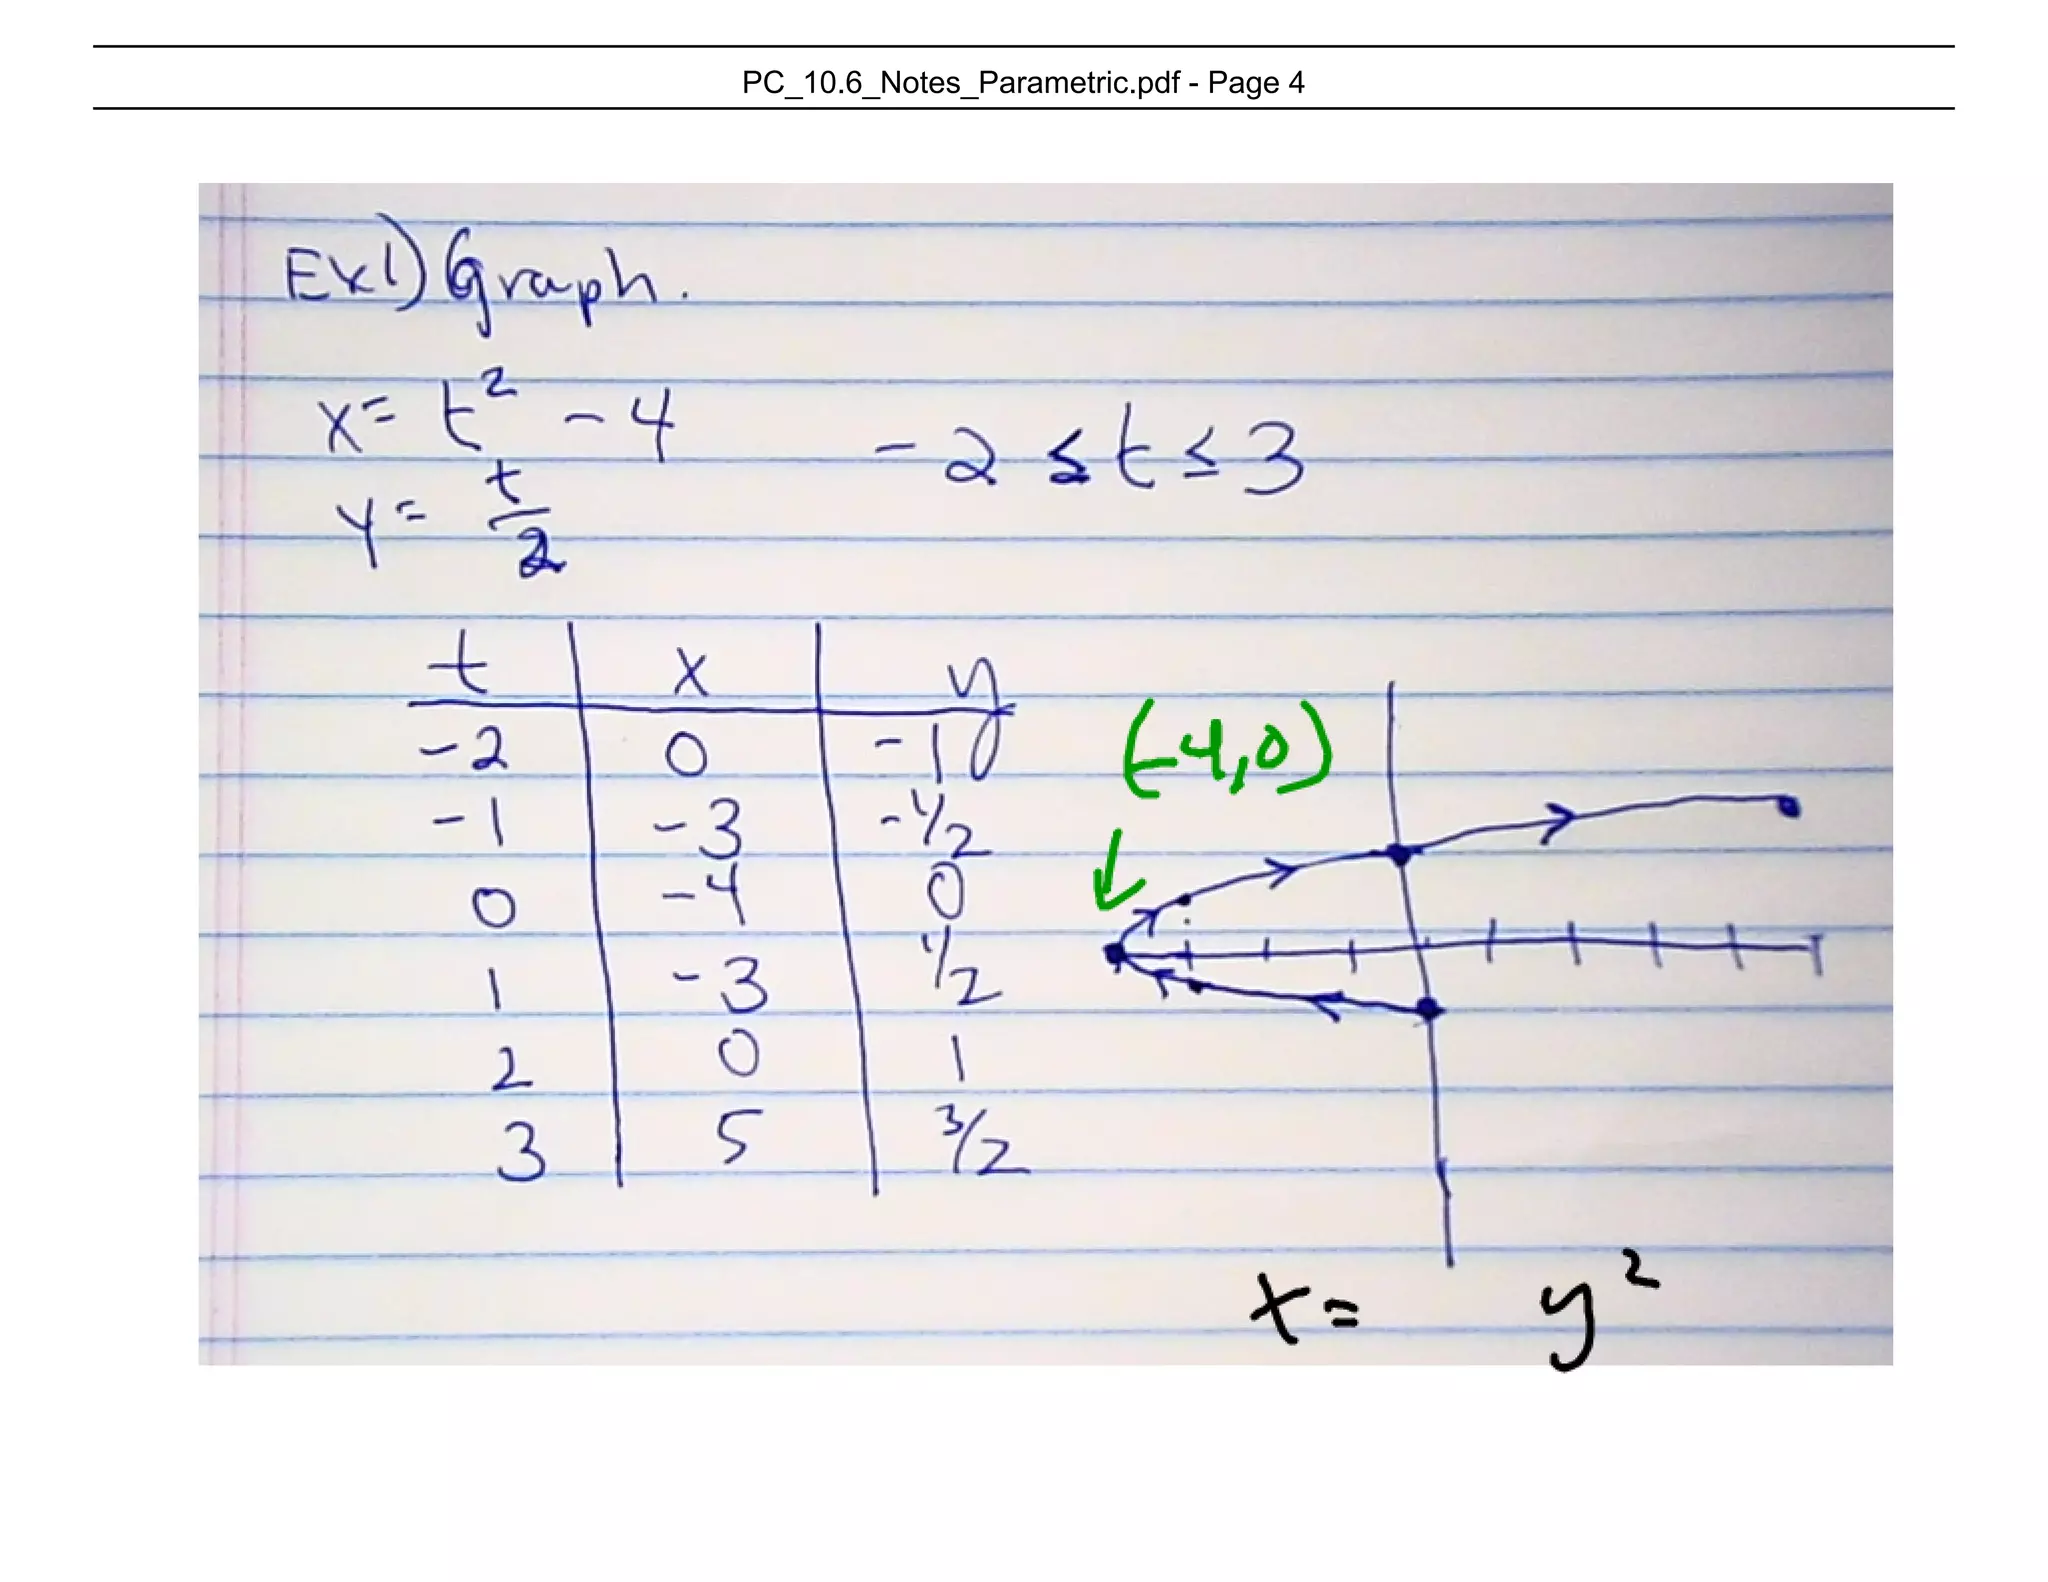 PC_10.6_Notes_Parametric.pdf - Page 4
Ex1) Graph.
x= t² - 4
-2 ≤ t ≤ 3
y= t/2
t x y
-2 0 -1
-1 -3 -1/2
0 -4 0
1 -3 1/2
2 0 1
3 5 3/2
(-4,0)
x= y²